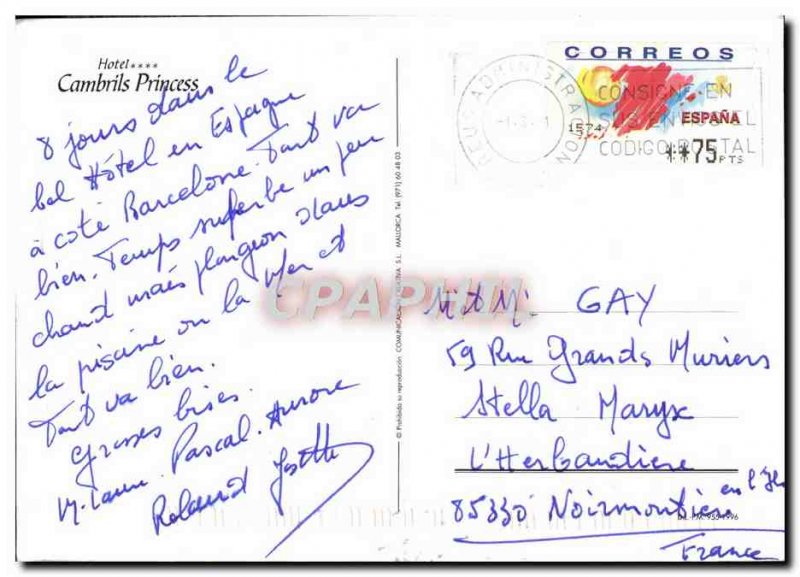 Hotel****
Cambrils Princess
8 jours dans le
bel Hôtel en Espagne
à coté Barcelone. Tout va
bien. Temps superbe un peu
chaud mais plongeon dans
la piscine ou la Mer et
Tout va bien.
Grosses bises.
Pascal. Aurore
Roland Josette
© Prohibida su reproducción COMUNICACION CREATIVA S.L. MALLORCA Tel. (971) 60 48 03
CPAPHIL
REUS ADMINISTRACION
CORREOS
CONSIGNE EN
SUS ENVIOS EL
CODIGO POSTAL
ESPAÑA
1574
**75 PTS
M et Mme GAY
59 Rue Grands Muriers
Stella Maryx
L'Herbaudiere
85330 Noirmoutier en l'Ile
France